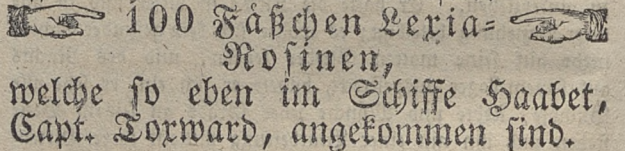 100 Fäßchen Lexia-
Rosinen,
welche so eben im Schiffe Haabet,
Capt. Torward, angekommen sind.